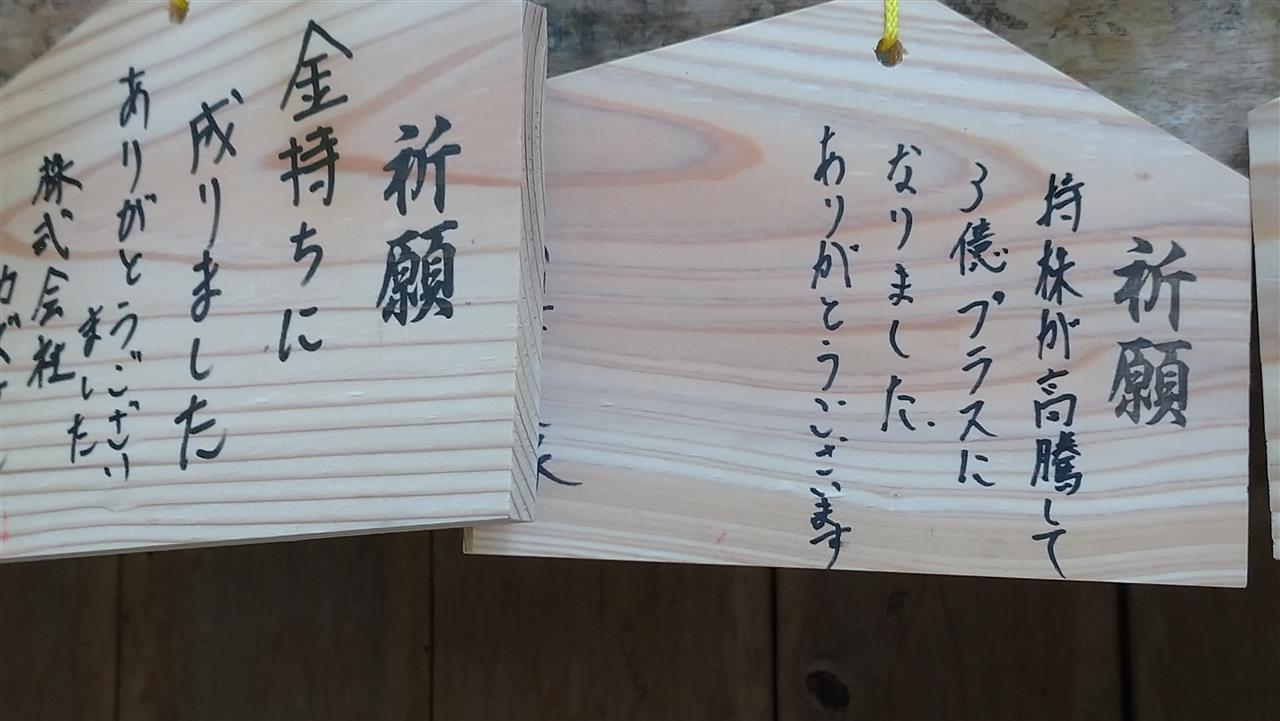 祈願
持株が高騰して
3億プラスに
なりました.
ありがとうございます
祈願
金持ちに
成りました
ありがとうござい
ました
株式会社